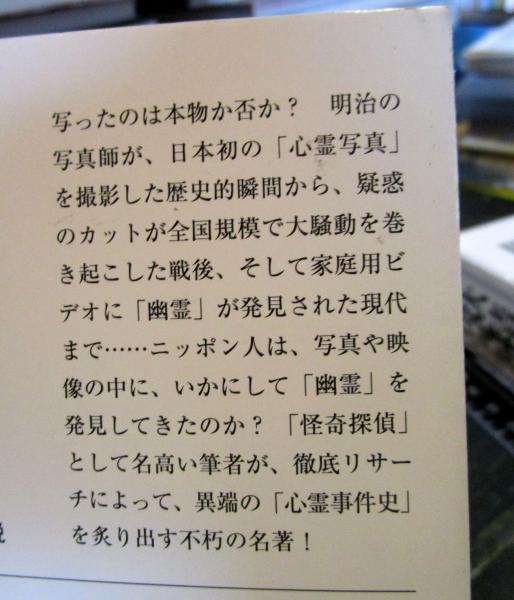 写ったのは本物か否か？　明治の
写真師が、日本初の「心霊写真」
を撮影した歴史的瞬間から、疑惑
のカットが全国規模で大騒動を巻
き起こした戦後、そして家庭用ビ
デオに「幽霊」が発見された現代
まで……ニッポン人は、写真や映
像の中に、いかにして「幽霊」を
発見してきたのか？「怪奇探偵」
として名高い筆者が、徹底リサー
チによって、異端の「心霊事件史」
を炙り出す不朽の名著！